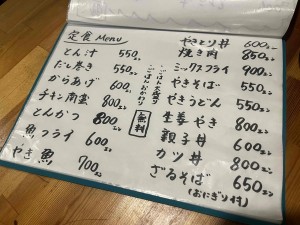 定食 Menu
とん汁 550円
だし巻き 550円
からあげ 600円
チキン南蛮 800円
とんかつ 800円
魚フライ 600円
やき魚 700円
ごはん大盛り
ごはんおかわり
無料
やきとり丼 600円
焼き肉 850円
ミックスフライ 900円
やきそば 550円
やきうどん 550円
生姜やき 800円
親子丼 600円
カツ丼 800円
ざるそば 650円
(おにぎり付)